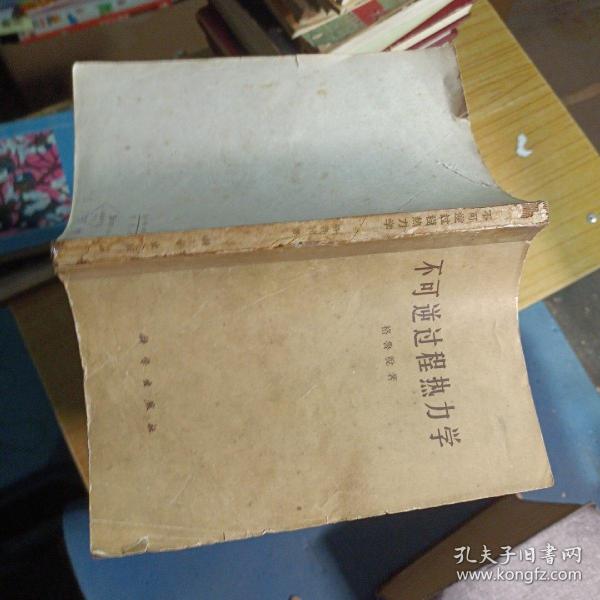 不可逆过程热力学
格鲁脱著
科学出版社
不可逆过程热力学
孔夫子旧书网
www.kongfz.com